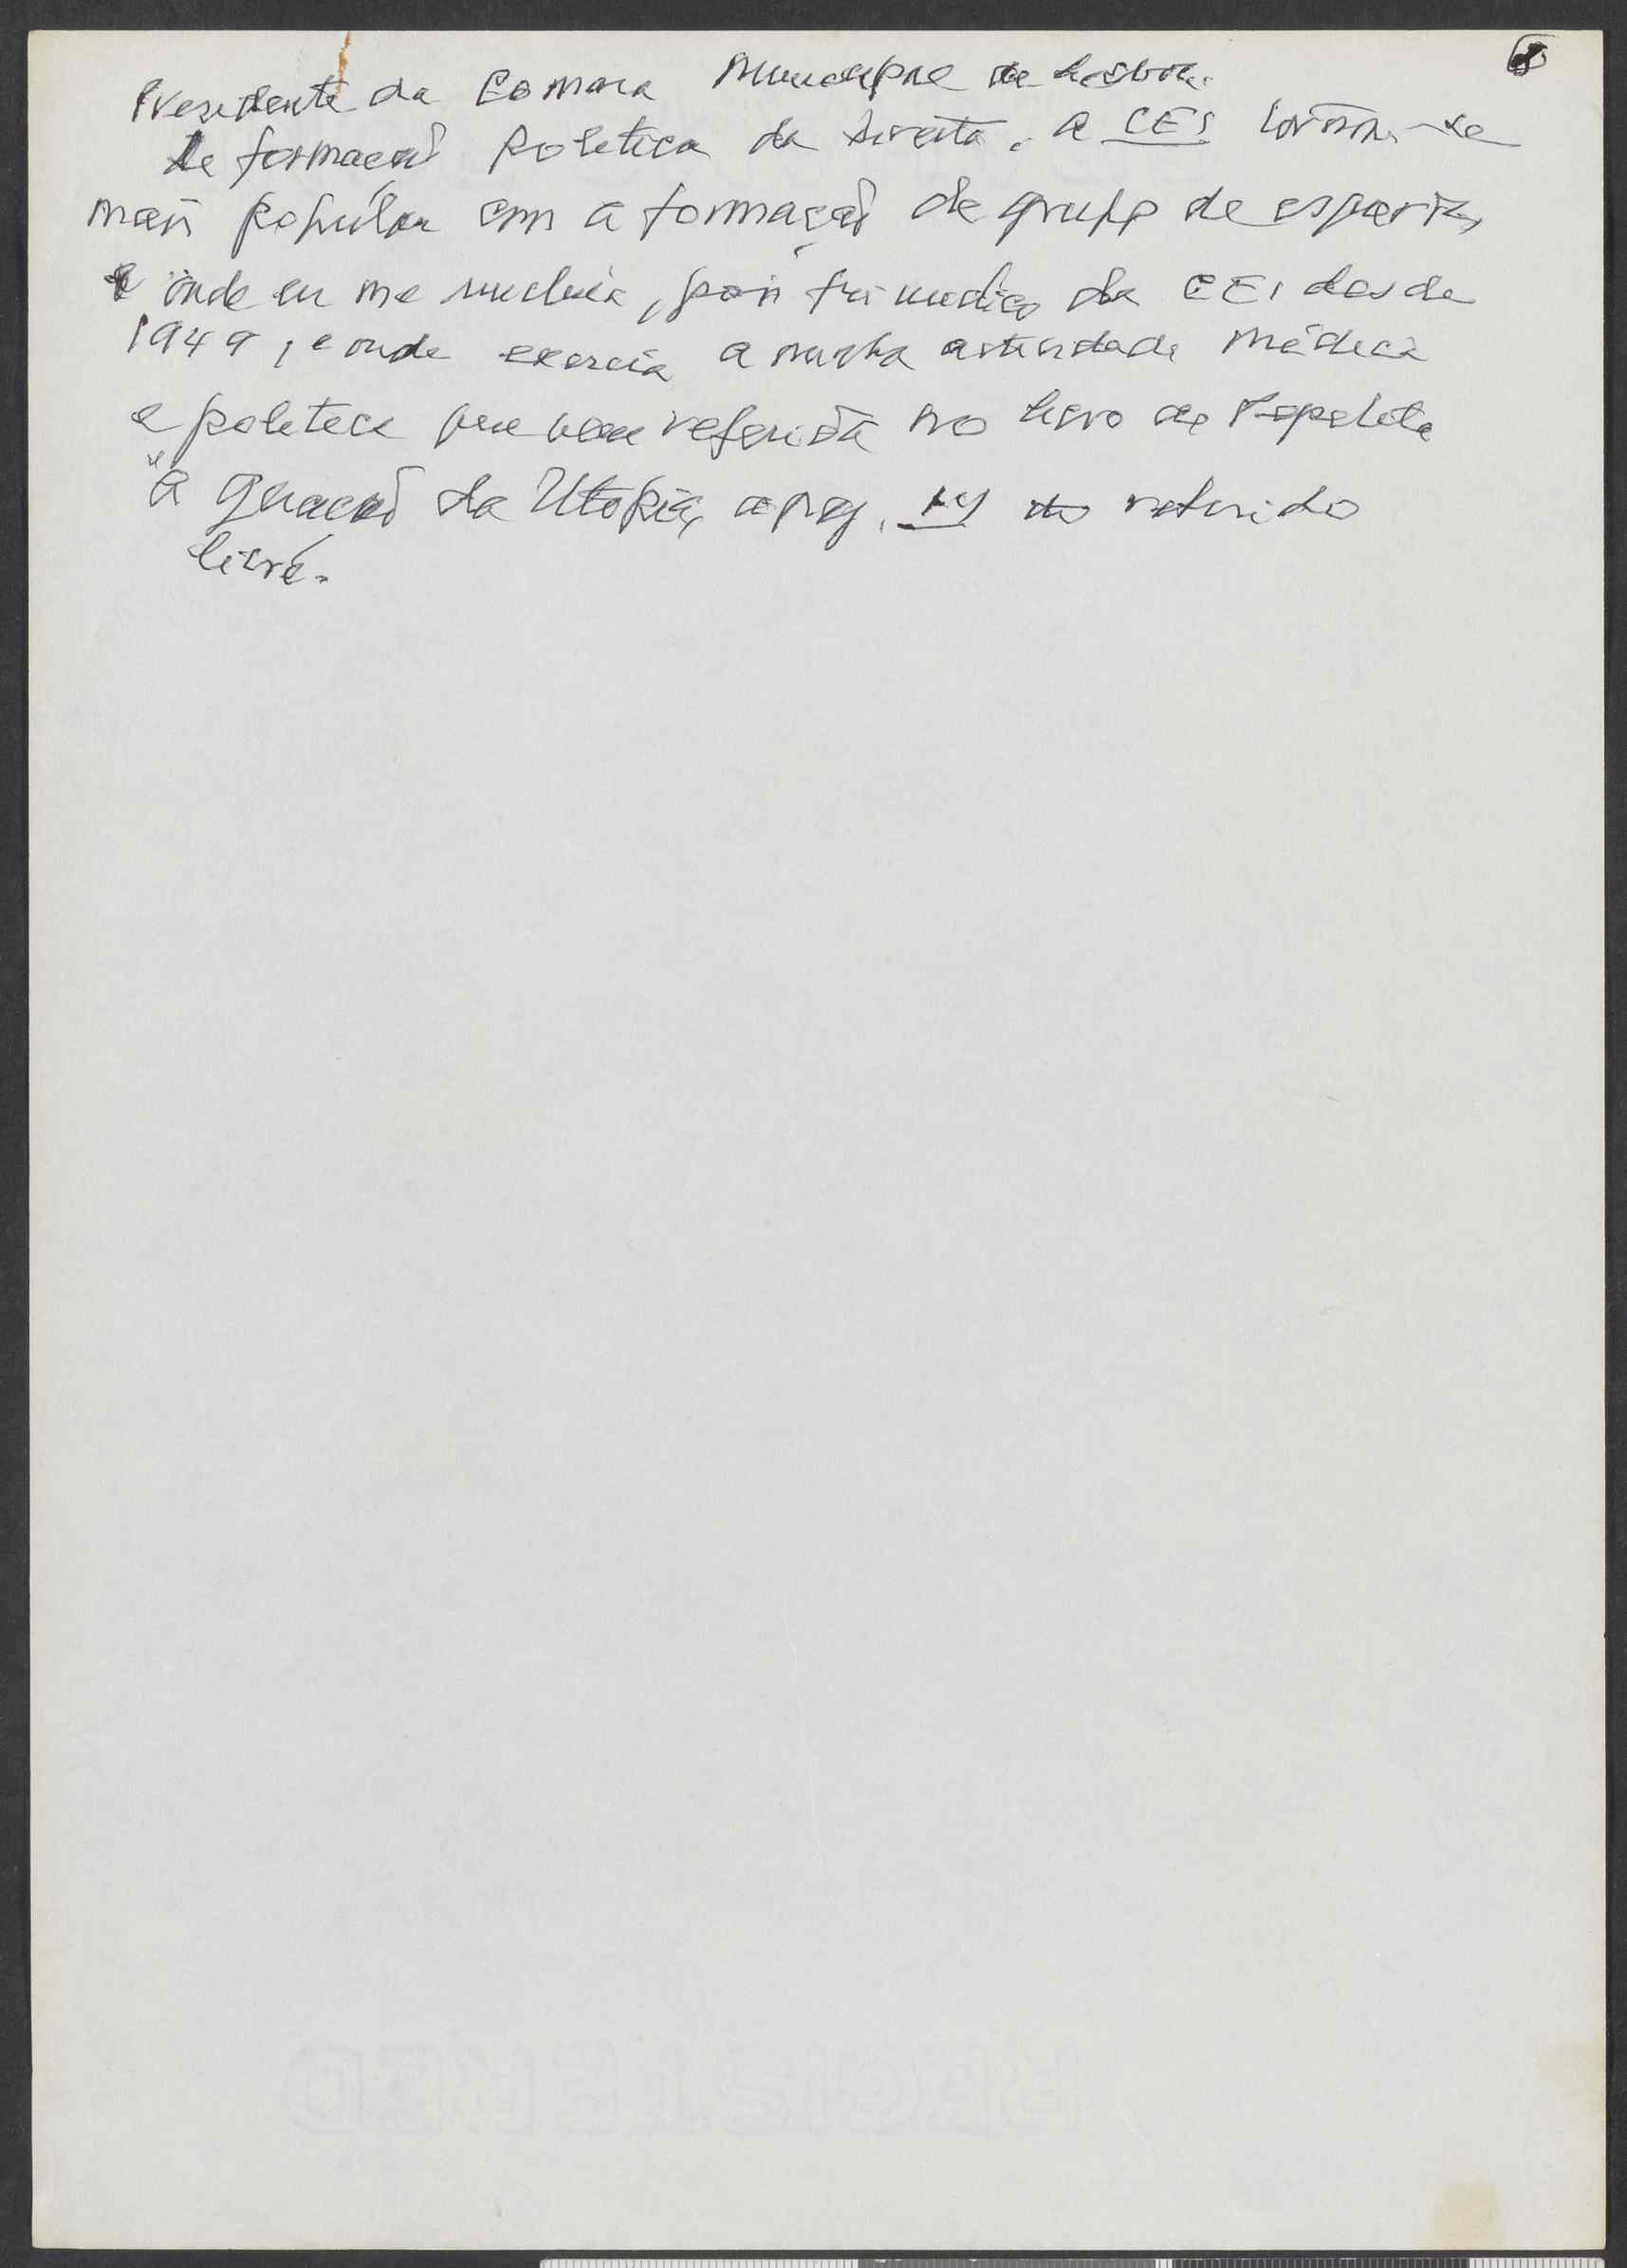 Presidente da Camara Municipal de Lisboa.
de formação politica da direita. a CEI tornou-se
mais popular com a formação de grupo de esquerda,
e onde eu me incluia, pois fui medico da CEI desde
1949, e onde exercia a minha actividade médica
e politica que vem referida no livro de Pepetela
"a geração da Utopia, a pag. do referido
livro.